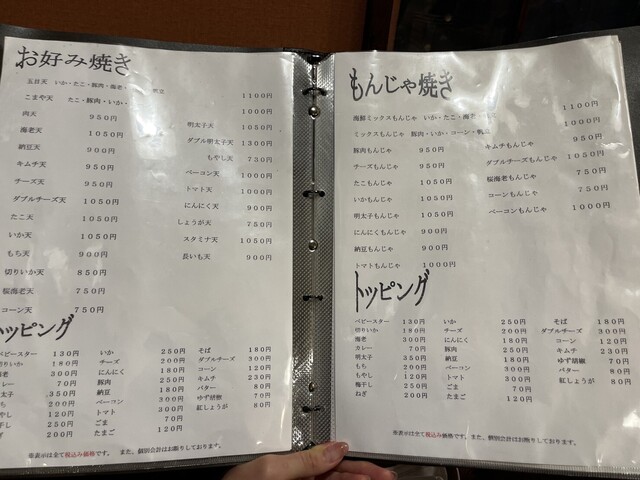 お好み焼き
五目天 いか・たこ・豚肉・海老・ 1100円
こまや天 たこ・豚肉・いか・ 1000円
肉天 950円
海老天 1050円
納豆天 900円
キムチ天 950円
チーズ天 950円
ダブルチーズ天 1050円
たこ天 1050円
いか天 1050円
もち天 900円
切りいか天 850円
桜海老天 750円
コーン天 750円
明太子天 1050円
ダブル明太子天 1300円
もやし天 730円
ベーコン天 1000円
トマト天 1000円
にんにく天 900円
しょうが天 750円
スタミナ天 1050円
長いも天 900円
トッピング
ベビースター 130円
切りいか 180円
海老 300円
カレー 70円
明太子 350円
もち 200円
もやし 120円
梅干し 250円
ねぎ 200円
いか 250円
チーズ 200円
にんにく 180円
豚肉 250円
納豆 180円
ベーコン 200円
トマト 300円
ごま 70円
たまご 120円
そば 180円
ダブルチーズ 300円
コーン 120円
キムチ 230円
バター 80円
ゆず胡椒 70円
紅しょうが 80円
※表示は全て税込み価格です。 また、個別会計はお断りしております。
もんじゃ焼き
海鮮ミックスもんじゃ いか・たこ・海老・ 1100円
ミックスもんじゃ 豚肉・いか・コーン・帆立 1000円
豚肉もんじゃ 950円
チーズもんじゃ 950円
たこもんじゃ 1050円
いかもんじゃ 1050円
明太子もんじゃ 1050円
にんにくもんじゃ 900円
納豆もんじゃ 900円
トマトもんじゃ 1000円
キムチもんじゃ 950円
ダブルチーズもんじゃ 1050円
桜海老もんじゃ 750円
コーンもんじゃ 750円
ベーコンもんじゃ 1000円
トッピング
ベビースター 130円
切りいか 180円
海老 300円
カレー 70円
明太子 350円
もち 200円
もやし 120円
梅干し 250円
ねぎ 200円
いか 250円
チーズ 200円
にんにく 180円
豚肉 250円
納豆 180円
ベーコン 200円
トマト 300円
ごま 70円
たまご 120円
そば 180円
ダブルチーズ 300円
コーン 120円
キムチ 230円
ゆず胡椒 70円
バター 80円
紅しょうが 80円
※表示は全て税込み価格です。また、個別会計はお断りしております。